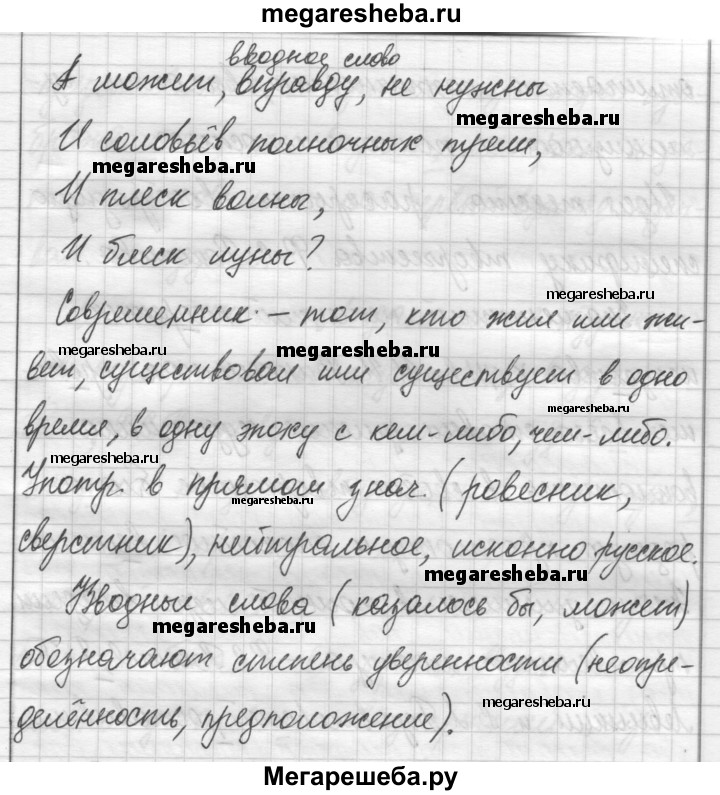 megaresheba.ru
вводное слово
А может, вправду, не нужны
megaresheba.ru
И соловьёв полночных трели,
megaresheba.ru
И плеск волны,
И блеск луны?
megaresheba.ru
Современник – тот, кто жил или жи-
megaresheba.ru megaresheba.ru
вет, существовал или существует в одно
megaresheba.ru
время, в одну эпоху с кем-либо, чем-либо.
megaresheba.ru
Употр. в прямом знач. (ровесник,
megaresheba.ru
сверстник), нейтральное, исконно русское.
megaresheba.ru
Вводные слова (казалось бы, может)
megaresheba.ru
обозначают степень уверенности (неопре-
megaresheba.ru
делённость, предположение).
Мегарешеба.ру